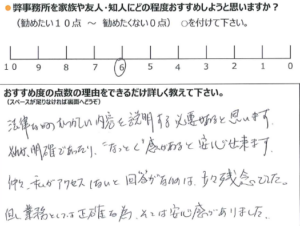 ●弊事務所を家族や友人・知人にどの程度おすすめしようと思いますか?
(勧めたい10点 ～ 勧めたくない0点) ○を付けて下さい。
10 9 8 7 6 5 4 3 2 1 0
おすすめ度の点数の理由をできるだけ詳しく教えて下さい。
(スペースが足りなければ裏面へどうぞ)
法律 むずかしい内容を説明する必要があると思います。
明確であったり、"なっとく"感があると安心出来ます。
私がアクセスしないと回答が 残念でした。
但し業務としては正確な為、 安心感がありました。